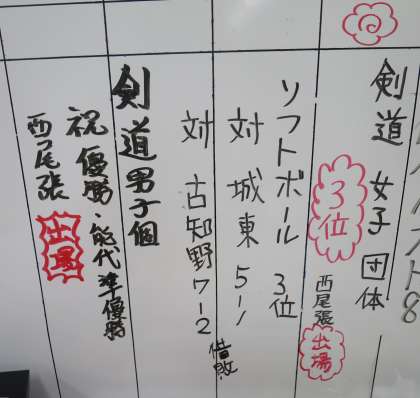 剣道 女子団体
3位 西尾張 出場
ソフトボール 3位
対 城東 5-1
対 古知野 7-2 惜敗
剣道男子個
祝 優勝・能代 準優勝
西尾張 出場